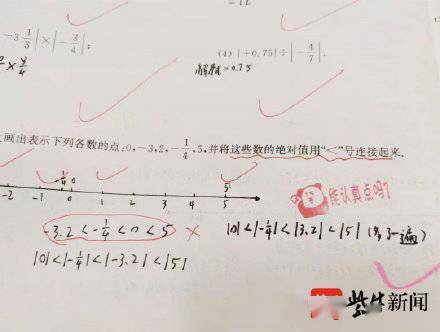 -3 1/3 |×|-3/4|;
(4) |+0.75|÷|-4/7|.
=0.75
画出表示下列各数的点:0,-3,2,-1/4,5,并将这些数的绝对值用“<”号连接起来.
-1/4 0 5
-2 -1 0 1 2 3 4 5
能认真点吗?
-3.2<-1/4<0<5 ×
|0|<|-1/4|<|3.2|<|5|
|0|<|-1/4|<|-3.2|<|5|
紫牛新闻